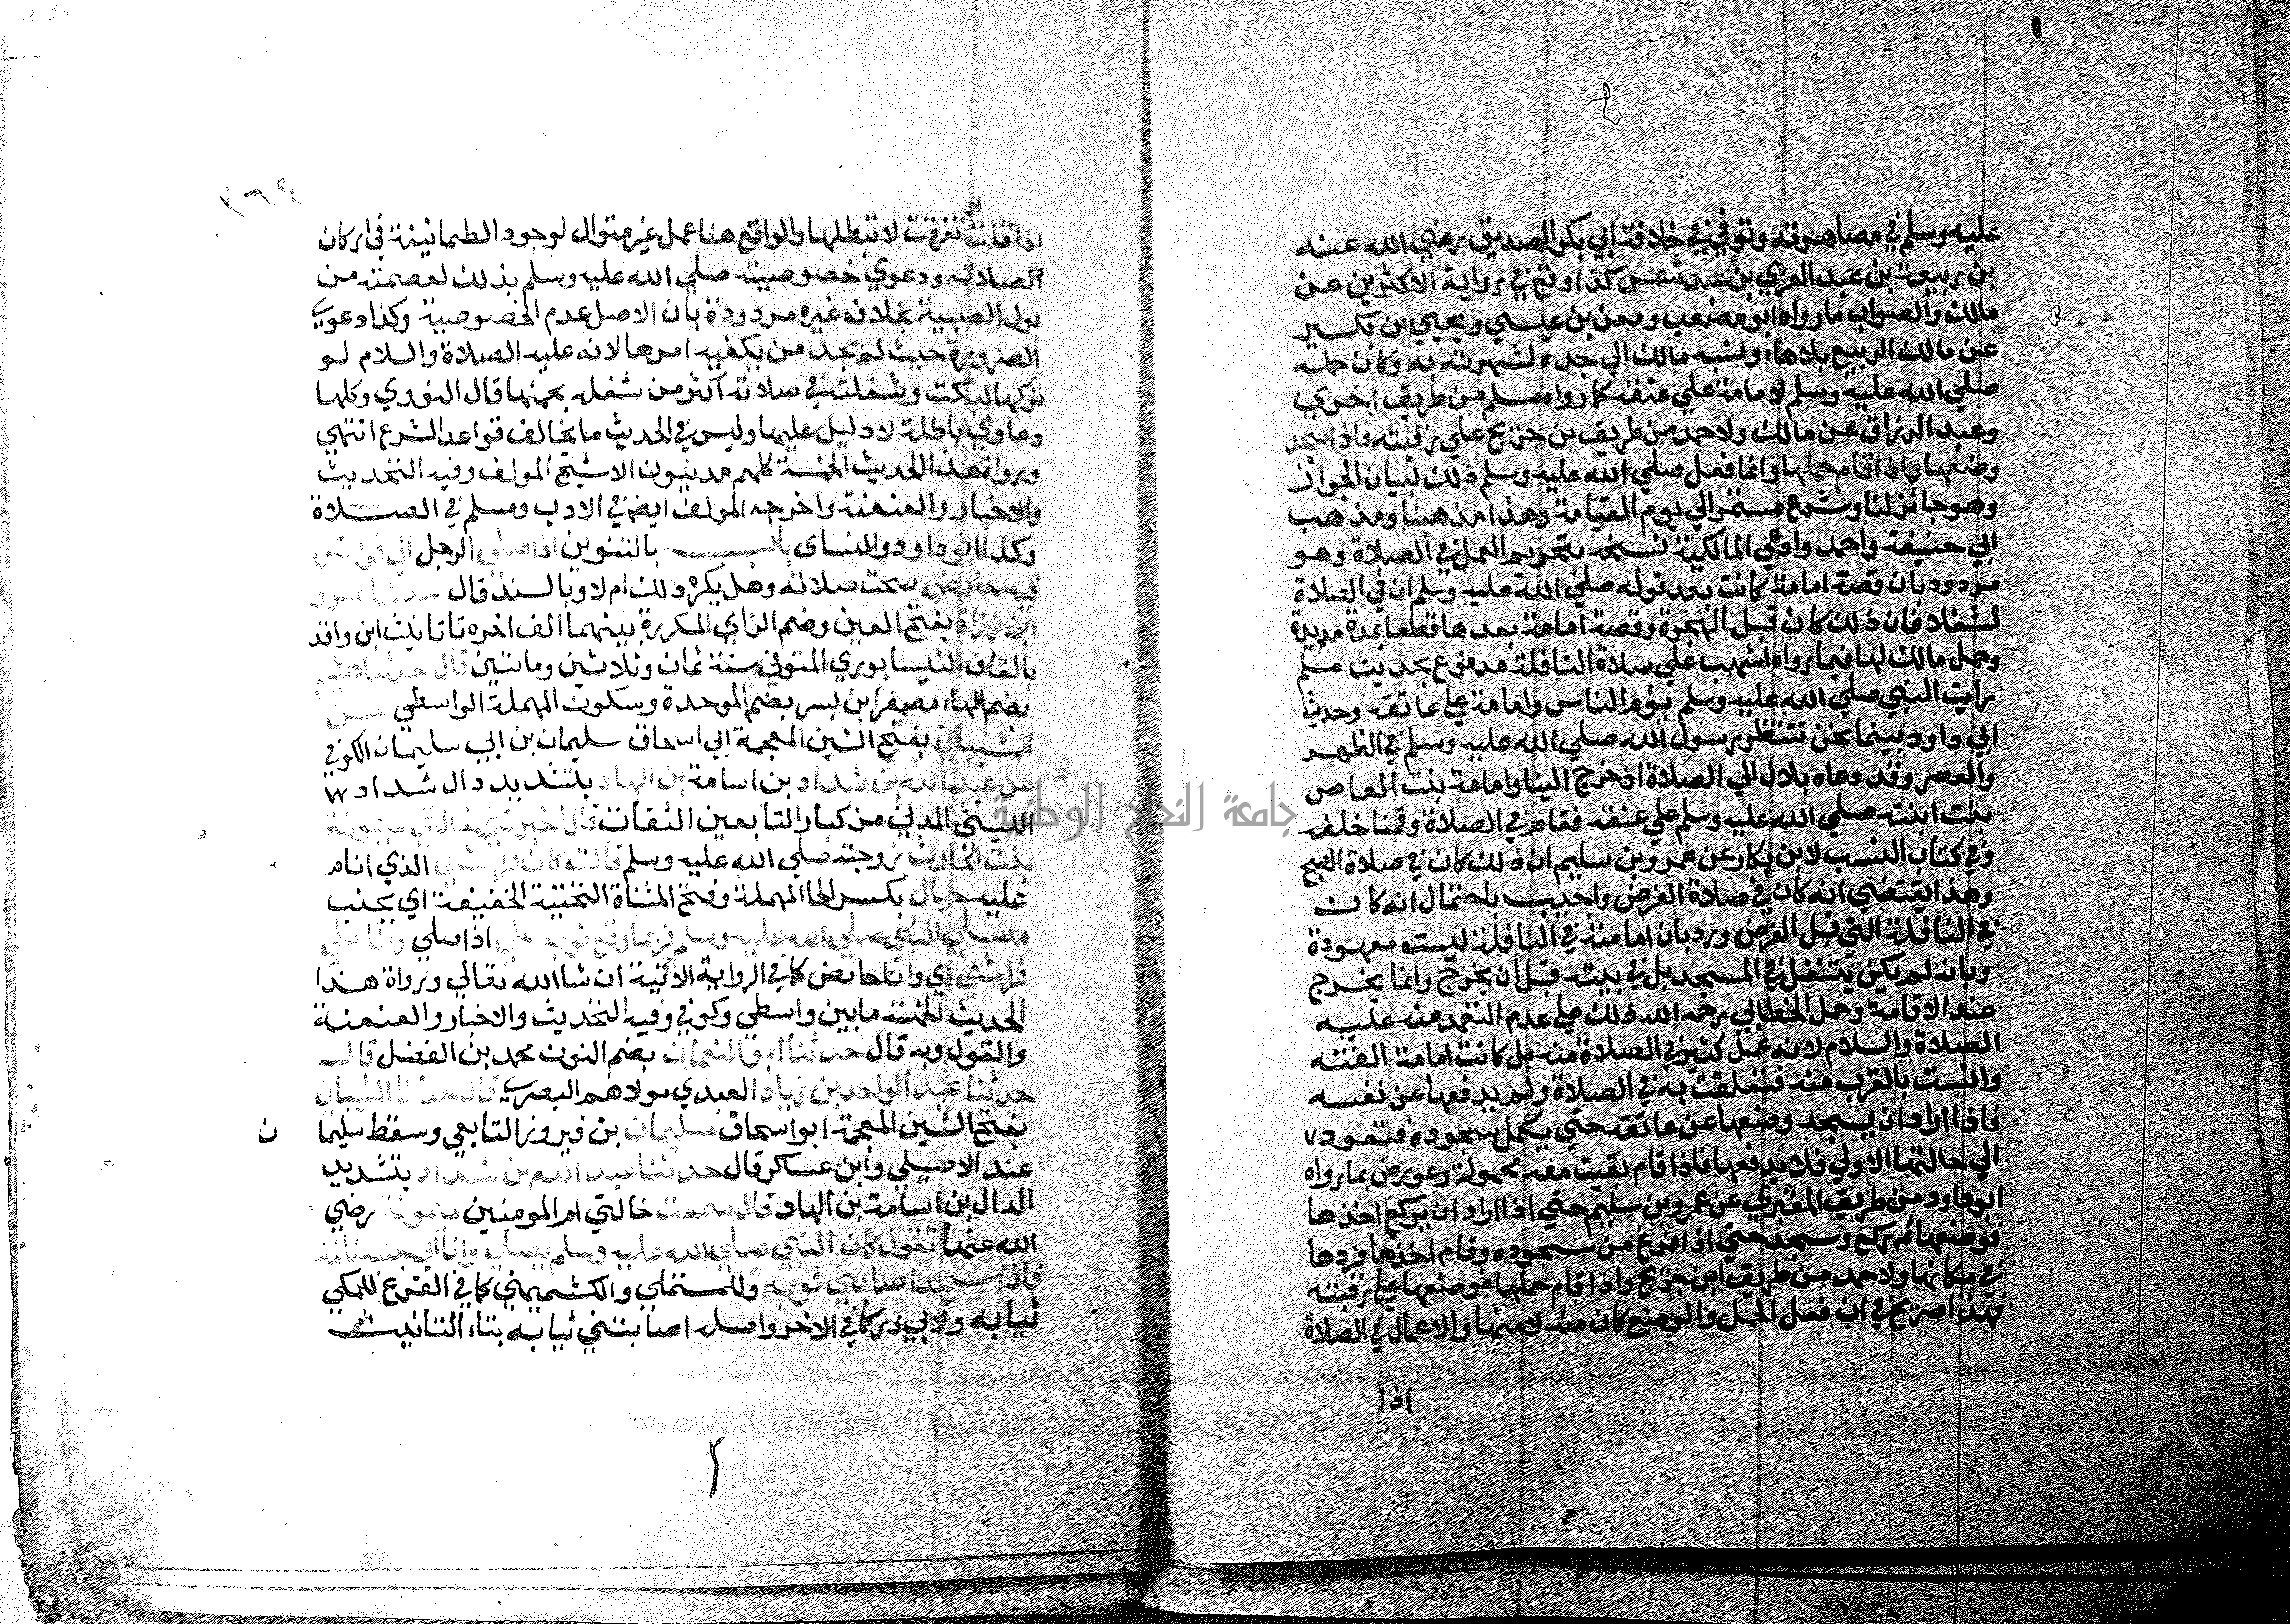 عليه وسلم في مصاهرته وتوفي في خلافة ابي بكر الصديق رضي الله عنه
بن ربيعة بن عبد العزي بن عبد شمس كذا وقع في رواية الاكثرين عن
مالك والصواب ما رواه ابو مصعب ومعن بن عيسي ويحيي بن بكير
عن مالك الربيع بلا هاء ونسبه مالك الي جده لشهرته به وكان حمله
صلي الله عليه وسلم لامامة علي عنقه كما رواه مسلم من طريق اخري
وعبد الرزاق عن مالك ولاحمد من طريق بن جريج علي رقبته فاذا سجد
وضعها واذا قام حملها وانما فعل صلي الله عليه وسلم ذلك لبيان الجواز
وهو جائز لنا وشرع مستمر الي يوم القيامة وهذا مذهبنا ومذهب
ابي حنيفة واحمد وادعي المالكية نسخه بتحريم العمل في الصلاة وهو
مردود بان قصة امامة كانت بعد قوله صلي الله عليه وسلم ان في الصلاة
لشغلا فان ذلك كان قبل الهجرة وقصة امامة بعدها قطعا بمدة مديدة
وحمل مالك لها فيما رواه اشهب علي صلاة النافلة مدفوع بحديث مسلم
رايت النبي صلي الله عليه وسلم يؤم الناس وامامة علي عاتقه وحديث
ابي داود بينما نحن ننتظر رسول الله صلي الله عليه وسلم في الظهر
والعصر وقد دعاه بلال الي الصلاة اذ خرج الينا وامامة بنت العاص
بنت ابنته صلي الله عليه وسلم علي عنقه فقام في الصلاة وقمنا خلفه
وفي كتاب النسب لابن بكار عن عمرو بن سليم ان ذلك كان في صلاة الصبح
وهذا يقتضي انه كان في صلاة الفرض واجيب باحتمال انه كان
في النافلة التي قبل الفرض ورد بان امامته في النافلة ليست معهودة
وبانه لم يكن يتنفل في المسجد بل في بيته قبل ان يخرج وانما يخرج
عند الاقامة وحمل الخطابي رحمه الله ذلك علي عدم التعمد منه عليه
الصلاة والسلام لانه عمل كثير في الصلاة منه بل كانت امامة الفته
وانست بالقرب منه فتعلقت به في الصلاة ولم يدفعها عن نفسه
فاذا اراد ان يسجد وضعها عن عاتقه حتي يكمل سجوده فتعود
الي حالتها الاولي فلا يدفعها فاذا قام بقيت معه محمولة وعورض بما رواه
ابو داود من طريق المقبري عن عمرو بن سليم حتي اذا اراد ان يركع اخذها
فوضعها ثم ركع وسجد حتي اذا فرغ من سجوده وقام اخذها فردها
في مكانها ولاحمد من طريق ابن جريج واذا قام حملها فوضعها علي رقبته
فهذا صريح في ان فعل الحمل والوضع كان منه لا منها والاعمال في الصلاة
اذا
او
اذا قلت تفرقت لا تبطلها والواقع هنا عمل غير متوال لوجود الطمانينة في اركان
الصلاته ودعوي خصوصيته صلي الله عليه وسلم بذلك لعصمته من
بول الصبية بخلاف غيره مردودة بان الاصل عدم الخصوصية وكذا دعوي
الضرورة حيث لم يجد من يكفيه امرها لانه عليه الصلاة والسلام لو
تركها لبكت وشغلته في صلاته اكثر من شغله بحملها قال النووي وكلها
دعاوي باطلة لا دليل عليها وليس في الحديث ما يخالف قواعد الشرع انتهي
ورواة هذا الحديث الخمسة كلهم مدنيون الا شيخ المولف وفيه التحديث
والاخبار والعنعنة واخرجه المولف ايضا في الادب ومسلم في الصلاة
وكذا ابو داود والنساي باب بالتنوين اذا صلي الرجل الي فراش
فيه حايض صحت صلاته وهل يكره ذلك ام لا وبالسند قال حدثنا عمرو
ابن زرارة بفتح العين وضم الزاي المكررة بينهما الف اخره تا تانيث ابن واقد
بالقاف النيسابوري المتوفي سنة ثمان وثلاثين ومائتين قال حدثنا هشيم
بضم الهاء مصغرا ابن بسر بضم الموحدة وسكون المهملة الواسطي عن
الشيباني بفتح الشين المعجمة ابي اسحاق سليمان بن ابي سليمان الكوفي
عن عبد الله بن شداد بن اسامة بن الهاد بتشديد دال شداد
الليثي المدني من كبار التابعين الثقات قال اخبرتني خالتي ميمونة
بنت الحارث زوجته صلي الله عليه وسلم قالت كان فراشي الذي انام
عليه حيال بكسر الحا المهملة وفتح المثناة التحتية الخفيفة اي بجنب
مصلي النبي صلي الله عليه وسلم فربما وقع ثوبه علي اذا صلي وانا علي
فراشي اي وانا حائض كما في الرواية الاتية ان شا الله تعالي ورواة هذا
الحديث الخمسة ما بين واسطي وكوفي وفيه التحديث والاخبار والعنعنة
والقول وبه قال حدثنا ابو النعمان بضم النون محمد بن الفضل قال
حدثنا عبد الواحد بن زياد العبدي مولاهم البصري قال حدثنا الشيباني
بفتح الشين المعجمة ابو اسحاق سليمان بن فيروز التابعي وسقط سليما
ن
عند الاصيلي وابن عساكر قال حدثنا عبد الله بن شداد بتشديد
الدال بن اسامة بن الهاد قال سمعت خالتي ام المومنين ميمونة رضي
الله عنها تقول كان النبي صلي الله عليه وسلم يصلي وانا الي جنبه نائمة
فاذا سجد اصابني ثوبه وللمستملي والكشميهني كما في الفرع للمكي
ثيابه ولابي ذر كما في الاخر واصله اصابتني ثيابه بتاء التانيث
جامعة النجاح الوطنية